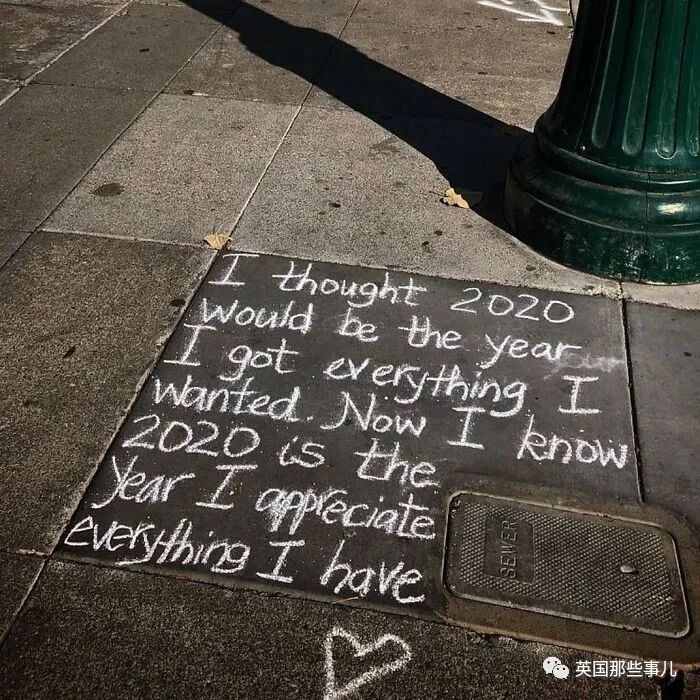 I thought 2020
would be the year
I got everything I
wanted. Now I know
2020 is the
year I appreciate
everything I have
SEWER
英国那些事儿